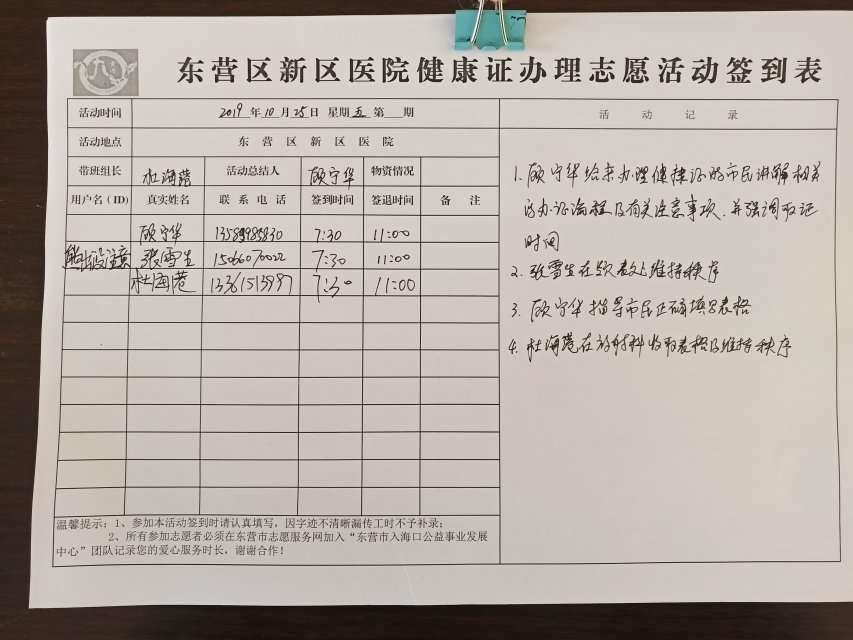 东营区新区医院健康证办理志愿活动签到表
活动时间 2019 年 10 月 25 日 星期 五 第 期 活 动 记 录
活动地点 东 营 区 新 区 医 院
带班组长 杜海港 活动总结人 顾宁华 物资情况
用户名(ID) 真实姓名 联 系 电 话 签到时间 签退时间 备 注
顾宁华 13589985830 7:30 11:00
张雪生 15066070022 7:30 11:00
杜海港 13361513997 7:30 11:00
1. 顾宁华给来办理健康证的市民讲解相关
的办证流程及有关注意事项、并强调取证
时间
2. 张雪生在维持秩序
3. 顾宁华指导市民正确填写表格
4. 杜海港在放射科收取表格及维持秩序
温馨提示：1、参加本活动签到时请认真填写，因字迹不清晰漏传工时不予补录；
2、所有参加志愿者必须在东营市志愿服务网加入“东营市入海口公益事业发展
中心”团队记录您的爱心服务时长，谢谢合作！